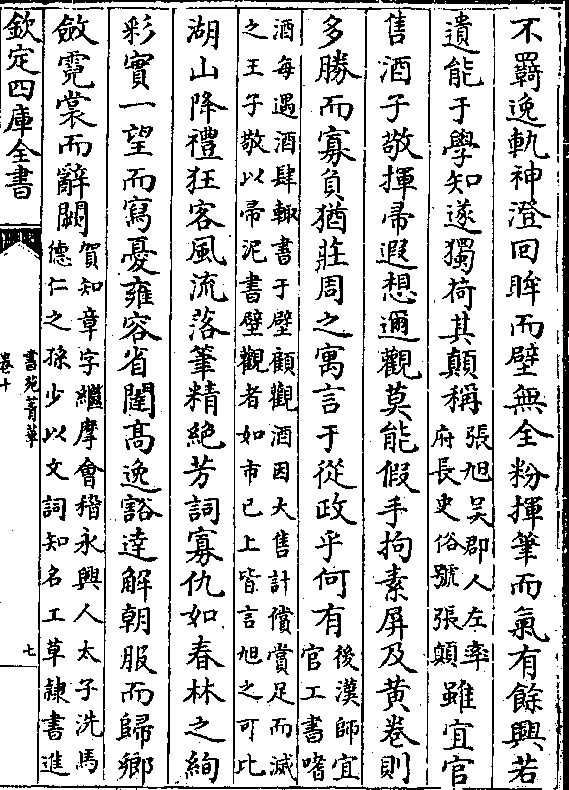 不羈逸軌神澄回眸而壁無全粉揮筆而氣有餘興若
遺能于學知遂獨荷其顛稱張旭吳郡人左率府長史俗號張顛雖宜官
售酒子敬揮帚遐想邇觀莫能假手拘素屏及黄卷則
多勝而寡負猶莊周之寓言于從政乎何有後漢師宜官工書嗜
酒每遇酒肆輙書于壁顧觀酒因大售計償賞足而滅之王子敬以帚泥書壁觀者如市已上皆言旭之可比
湖山降禮狂客風流落筆精絶芳詞寡仇如春林之絢
彩實一望而寫憂雍容省闥高逸豁達解朝服而歸鄉
斂霓裳而辭闕賀知章字繼摩會稽永興人太子洗馬德仁之孫少以文詞知名工草隷書進
欽定四庫全書
書苑菁華
卷十
七